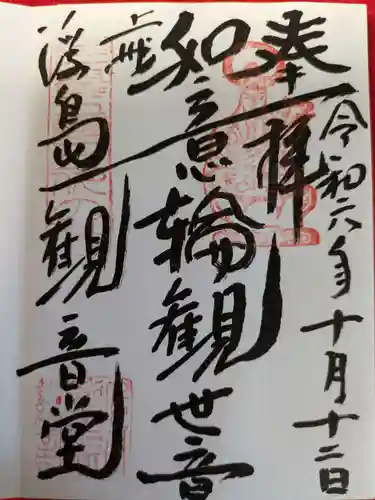 奉拝
令和六年十月十二日
如意輪観世音
上戒
浮島観音堂